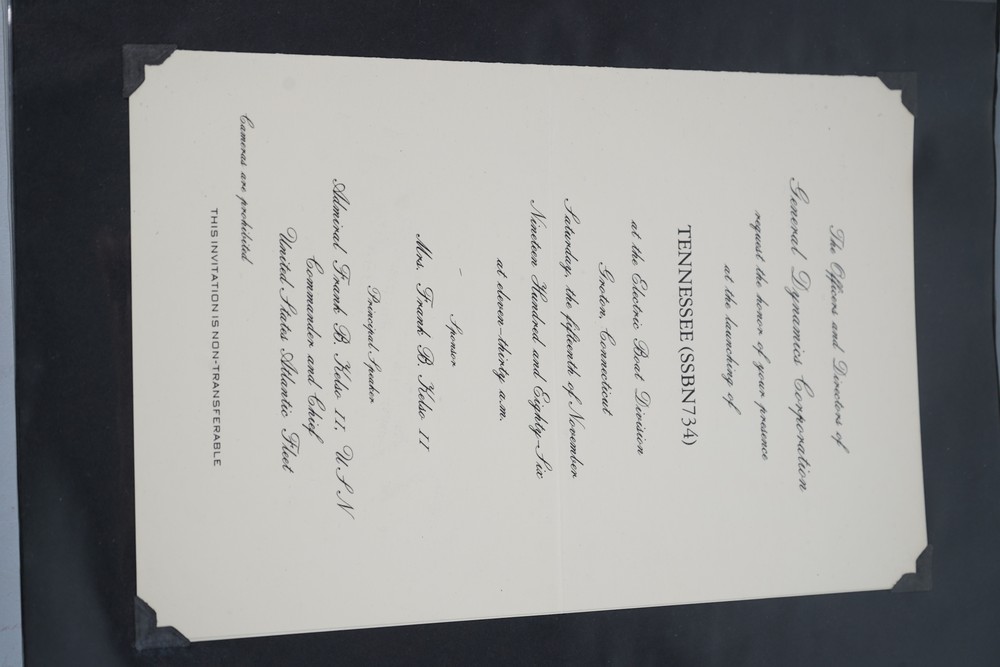 The Officers and Directors of
General Dynamics Corporation
request the honor of your presence
at the launching of
TENNESSEE (SSBN734)
at the Electric Boat Division
Groton, Connecticut
Saturday, the fifteenth of November
Nineteen Hundred and Eighty-Six
at eleven-thirty a.m.
Sponsor
Mrs. Frank B. Kelso II
Principal Speaker
Admiral Frank B. Kelso II, USN
Commander and Chief
United States Atlantic Fleet
Cameras are prohibited
THIS INVITATION IS NON-TRANSFERABLE